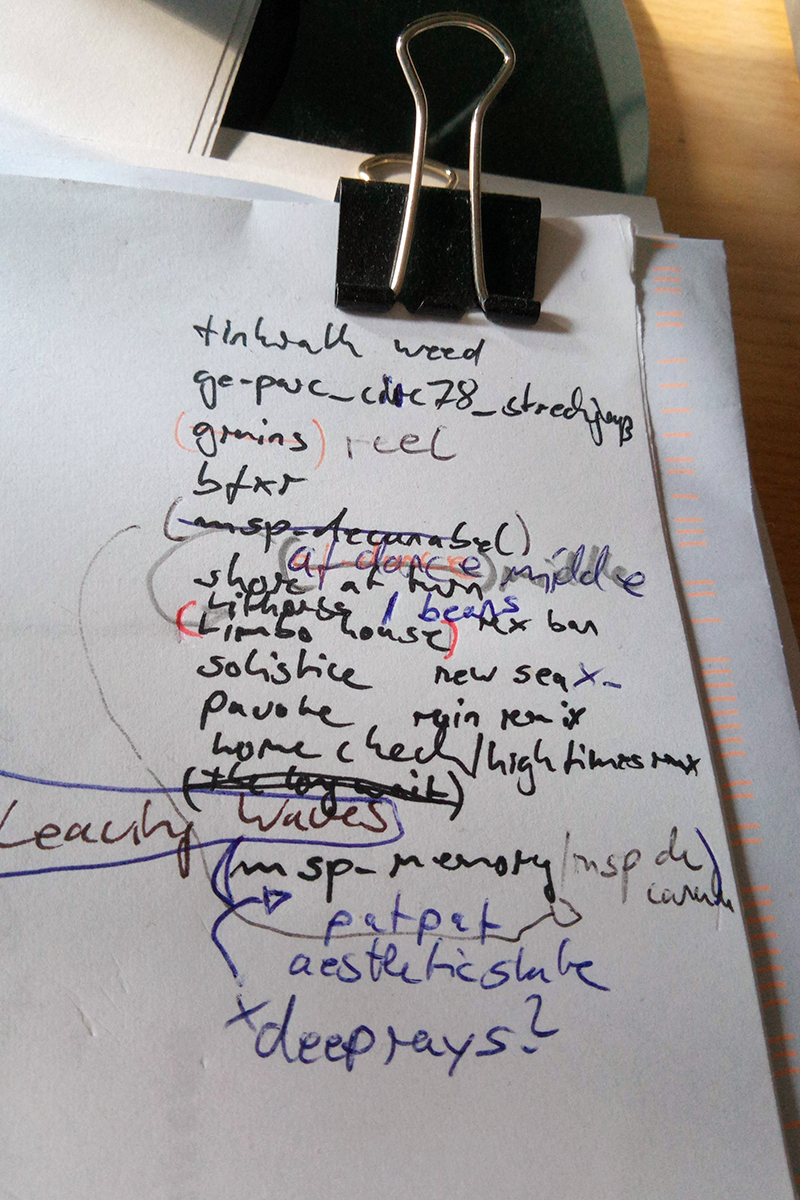 tinkwalk weed
ge-parc_circ78_stredjumps
(grains) reel
bfxr
(msp-decannabe()
(af-dancre) middle
short at turn
lithouse / beans
(Limbo house) rex ban
solistice new sea x-
pavoke rain remix
home check/high times rmx
(the log wait)
Leaving Waves
(msp-memory/msp de
patpat
aestheticslate
x deeprays?